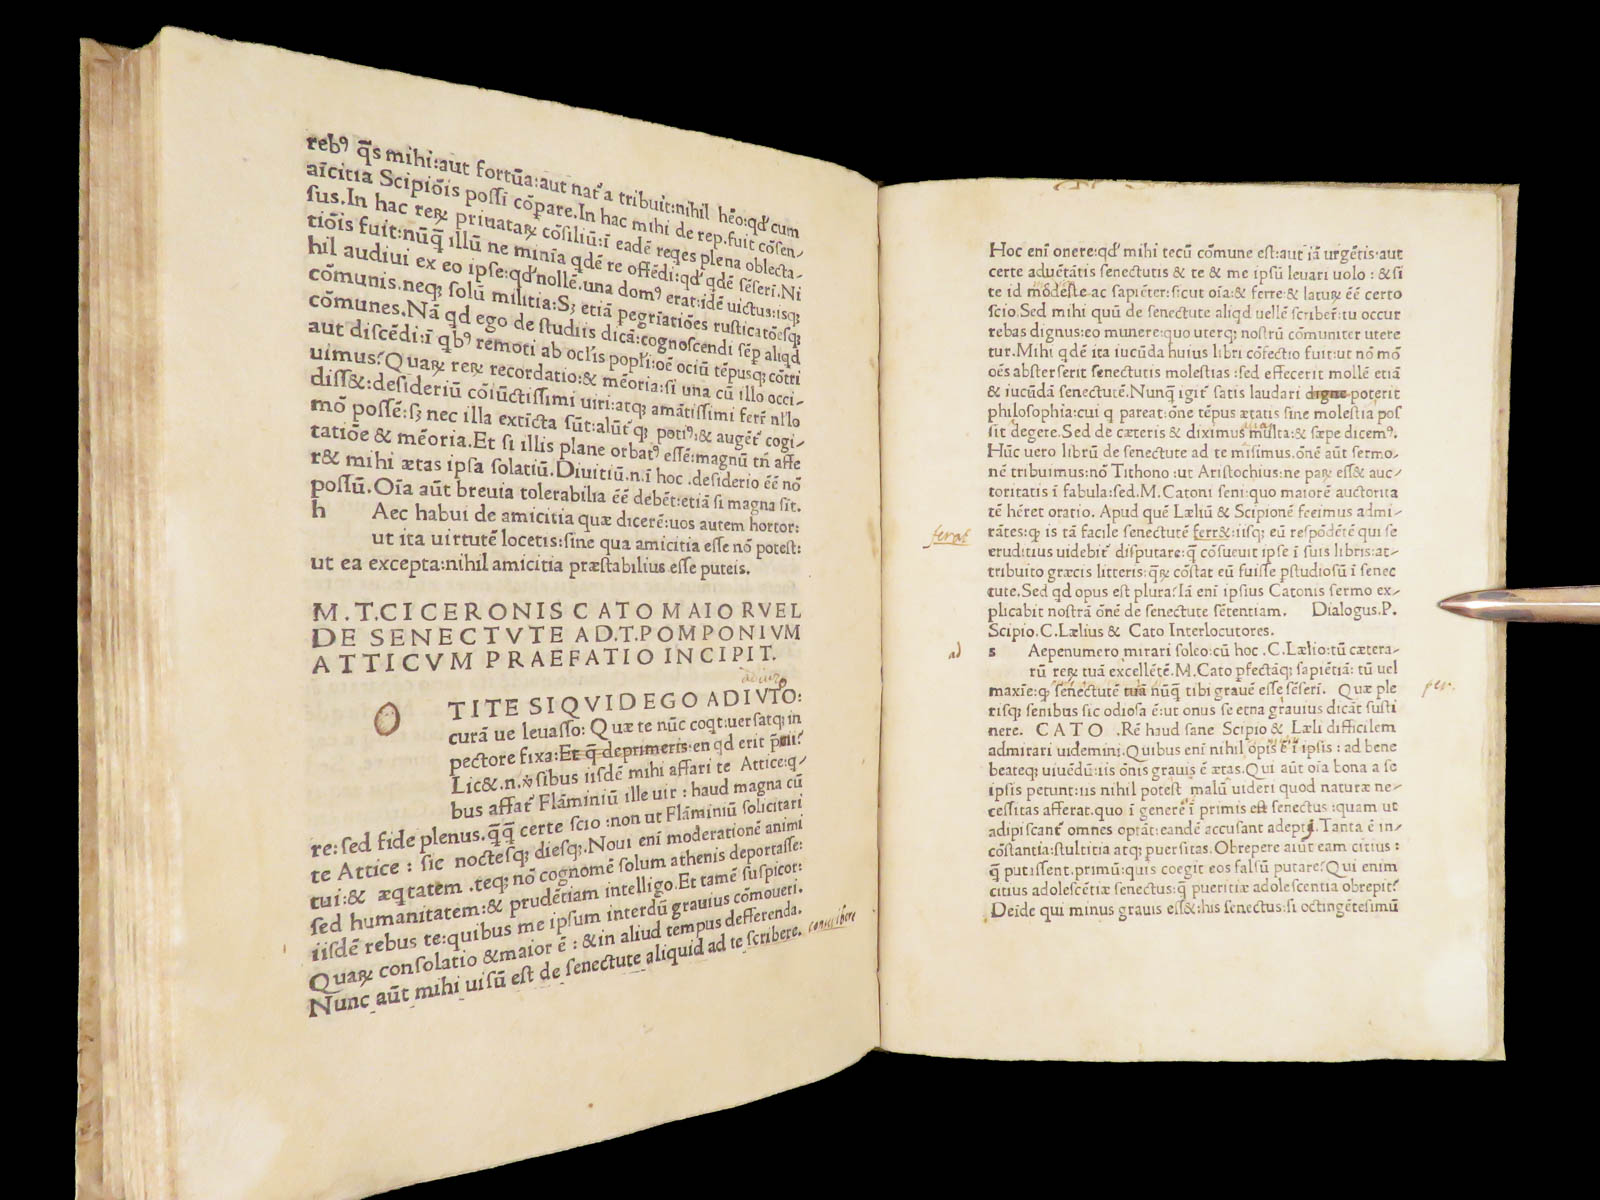 rebꝰ q̄s mihi:aut fortūa:aut nat᷑a tribuit:nihil hēo:qđ cum
aīcitia Scipiōis possi cōpare.In hac mihi de rep.fuit cōsen-
sus.In hac reꝝ priuataꝝ cōsiliū:ī eadē reqes plena oblecta-
tiōis fuit:nūq̄ illū ne minīa qdē re offēdi:qđ qdē sēserī.Ni
hil audiui ex eo ipse:qđ nollē.una domꝰ erat:idē uictus:isqꝫ
cōmunis.neqꝫ solū militia:Sꝫ etiā pegrīatiōes rusticatōesqꝫ
cōmunes.Nā qd ego de studiis dicā:cognoscendi sēp aliqd
aut discēdi:ī qbꝰ remoti ab ocl'is popl'i:oē ociū tēpusqꝫ cōtri
uimus?Quaꝝ reꝝ recordatio:& mēoria:si una cū illo occi-
diss&:desideriū cōiūctissimi uiri:atqꝫ amātissimi ferr̄ n'lo
mō possē:sꝫ nec illa extīcta sūt:alūt᷑ qꝫ potiꝰ:& auget᷑ cogi-
tatiōe & mēoria.Et si illis plane orbatꝰ essē:magnū tn̄ affe
r& mihi ætas ipsa solatiū.Diutiū.n.ī hoc .desiderio ēē nō
possū.Oīa aūt breuia tolerabilia ēē debēt:etiā si magna sit.
h Aec habui de amicitia quæ dicerē:uos autem hortor:
ut ita uirtutē locetis:sine qua amicitia esse nō potest:
ut ea excepta:nihil amicitia præstabilius esse puteis.
M.T.CICERONIS CATO MAIOR VEL
DE SENECTVTE AD.T.POMPONIVM
ATTICVM PRAEFATIO INCIPIT.
adiuro
O TITE SI QVID EGO ADIVTO:
curā ue leuasso: Quæ te nūc coqt:uersatqꝫ in
pectore fixa:Et q̄ deprimeris:en qd erit p̄mii?
Lic&.n.ꝟsibus iisdē mihi affari te Attice:q-
bus affat᷑ Flāminiū ille uir : haud magna cū
re: sed fide plenus.q̄q̄ certe scio :non ut Flāminiū solicitari
te Attice : sic noctesqꝫ diesqꝫ.Noui enī moderationē animi
tui:& æqtatem .teqꝫ nō cognomē solum athenis deportasse:
sed humanitatem:& prudētiam intelligo.Et tamē suspicor:
iisdē rebus te:quibus me ipsum interdū grauius cōmoueri.
Quaꝝ consolatio & maior ē : & in aliud tempus defferenda.
Nunc aūt mihi uisū est de senectute aliquid ad te scribere. conscribere
Hoc enī onere:qđ mihi tecū cōmune est:aut iā urgētis:aut
certe aduētātis senectutis & te & me ipsū leuari uolo : & si
te id modeste ac sapiēter:sicut oīa:& ferre:& laturꝝ ēē certo
scio.Sed mihi quū de senectute aliqd uellē scriber̄:tu occur
rebas dignus:eo munere:quo uterqꝫ nostrū cōmuniter utere
tur.Mihi qdē ita iucūda huius libri cōfectio fuit:ut nō mō
oēs absterserit senectutis molestias :sed effecerit mollē etiā
& iucūdā senectutē.Nunq̄ igit᷑ satis laudari digne poterit
philosophia:cui q pareat:ōne tēpus ætatis sine molestia pos
sit degere.Sed de cæteris & diximus multa:& sæpe dicemꝰ.
Hūc uero librū de senectute ad te misimus.ōnē aūt sermo-
nē tribuimus:nō Tithono :ut Aristochius:ne paꝝ ess& auc-
toritatis ī fabula:sed.M.Catoni seni:quo maiorē auctorita
tē hēret oratio. Apud quē Læliū & Scipionē fecimus admi-
ferat rātes:ꝙ is tā facile senectutē ferr&:iisqꝫ eū respōdētē qui se
eruditius uidebit᷑ disputare:ꝙ cōsueuit ipse ī suis libris:at-
tribuito græcis litteris:q̄ꝝ cōstat eū fuisse pstudiosū ī senec
tute.Sed qd opus est plura?Iā enī ipsius Catonis sermo ex-
plicabit nostrā ōnē de senectute sētentiam. Dialogus.P.
Scipio.C.Lælius & Cato Interlocutores.
ad s Aepenumero mirari soleo:cū hoc .C.Lælio:tū cætera-
rū reꝝ tuā excellētē.M.Cato pfectāqꝫ sapiētiā: tū uel
maxīe:ꝙ senectutē tuā nūq̄ tibi grauē esse sēserī. Quæ ple
risqꝫ senibus sic odiosa ē:ut onus se etna grauius dicāt susti
nere. CATO .Rē haud sane Scipio & Læli difficilem
admirari uidemini.Quibus enī nihil opis ē ī ipsis : ad bene
beateqꝫ uiuēdū:iis ōnis grauis ē ætas.Qui aūt oīa bona a se
ipsis petunt:iis nihil potest malū uideri quod naturæ ne-
cessitas afferat.quo ī generē ī primis est senectus :quam ut
adipiscant᷑ omnes optāt:eandē accusant adepti.Tanta ē in-
cōstantia:stultitia atqꝫ puersitas.Obrepere aiūt eam citius :
q̄ putissent.primū:quis coegit eos falsū putare?Qui enim
citius adolescētiæ senectus:q̄ pueritiæ adolescentia obrepit?
Deide qui minus grauis ess&:his senectus:si octingētesimū